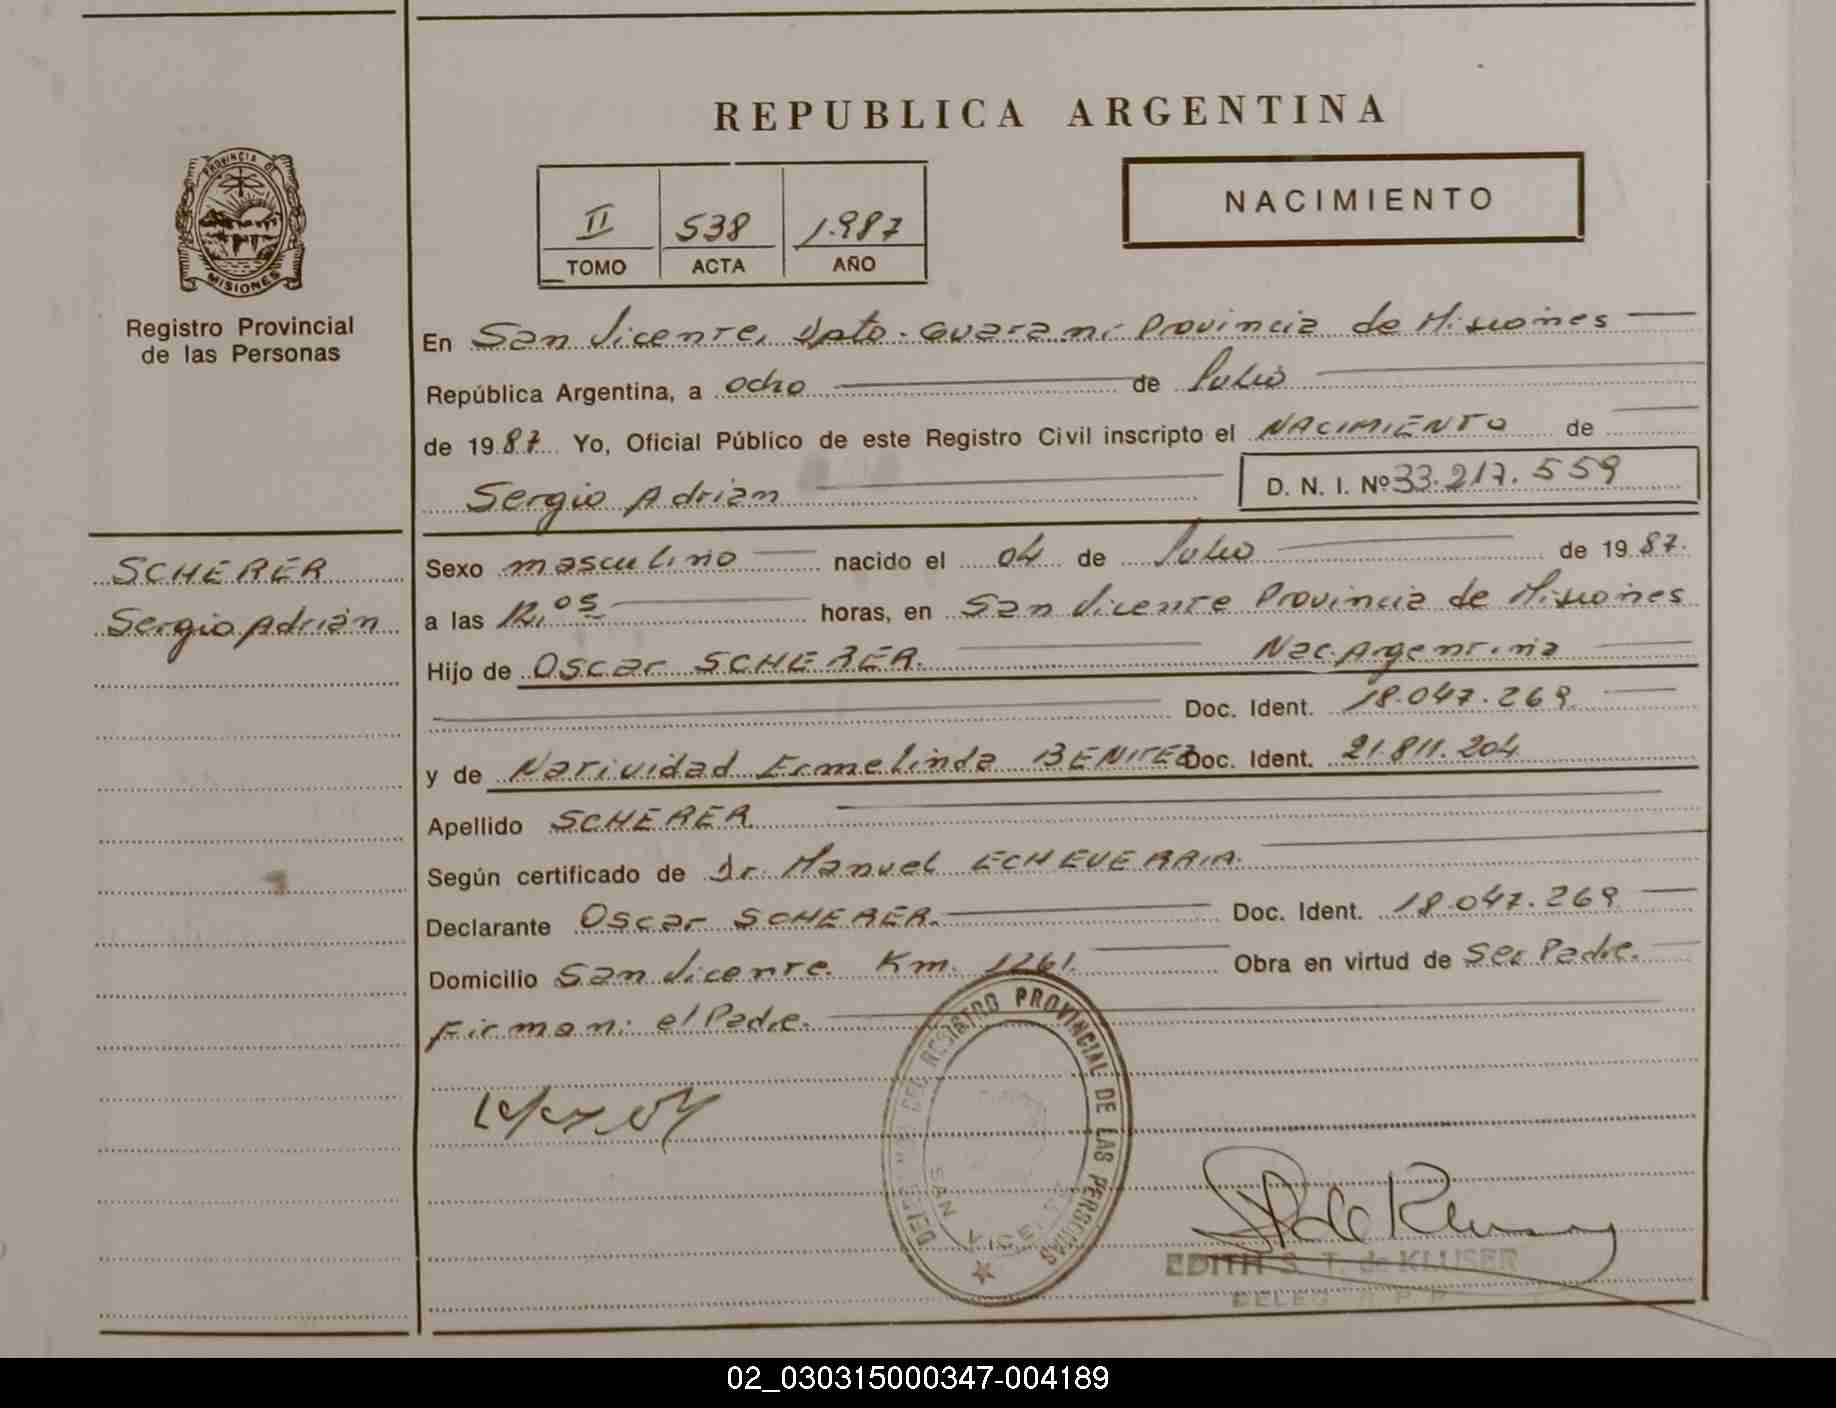 REPUBLICA ARGENTINA
PROVINCIA DE
MISIONES
Registro Provincial
de las Personas
II 538 1.987
TOMO ACTA AÑO
NACIMIENTO
En San Vicente, Dpto. Guaraní Provincia de Misiones
República Argentina, a ocho de Julio
de 1987. Yo, Oficial Público de este Registro Civil inscripto el NACIMIENTO de
Sergio Adrian
D. N. I. Nº 33.217.559
SCHERER
Sergio Adrián
Sexo masculino nacido el 04 de Julio de 1987.
a las 12,05 horas, en San Vicente Provincia de Misiones
Hijo de Oscar SCHERER. Nac. Argentina
Doc. Ident. 18.047.269
y de Natividad Ermelinda BENITEZ Doc. Ident. 21.811.204
Apellido SCHERER
Según certificado de Dr. Manuel ECHEVERRIA.
Declarante Oscar SCHERER. Doc. Ident. 18.047.269
Domicilio San Vicente. Km. 1261. Obra en virtud de Ser Padre.
Firman: el Padre.
DEL REGISTRO PROVINCIAL DE LAS PERSONAS
SAN VICENTE
EDITH S. T. de KLUSER
DELEG. R. P. P.
02_030315000347-004189